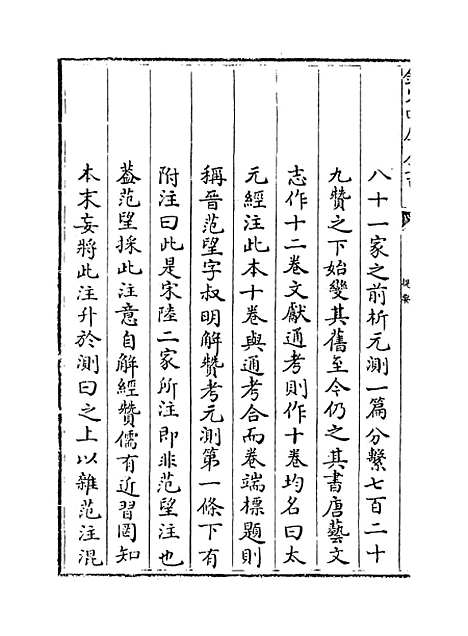 八十一家之前析元測一篇分繫七百二十
九贊之下始變其舊至今仍之其書唐藝文
志作十二卷文獻通考則作十卷均名曰太
元經注此本十卷與通考合而卷端標題則
稱晉范望字叔明解贊考元測第一條下有
附注曰此是宋陸二家所注即非范望注也
葢范望採此注意自解經贊儒有近習罔知
本末妄將此注升於測曰之上以雜范注混
提要